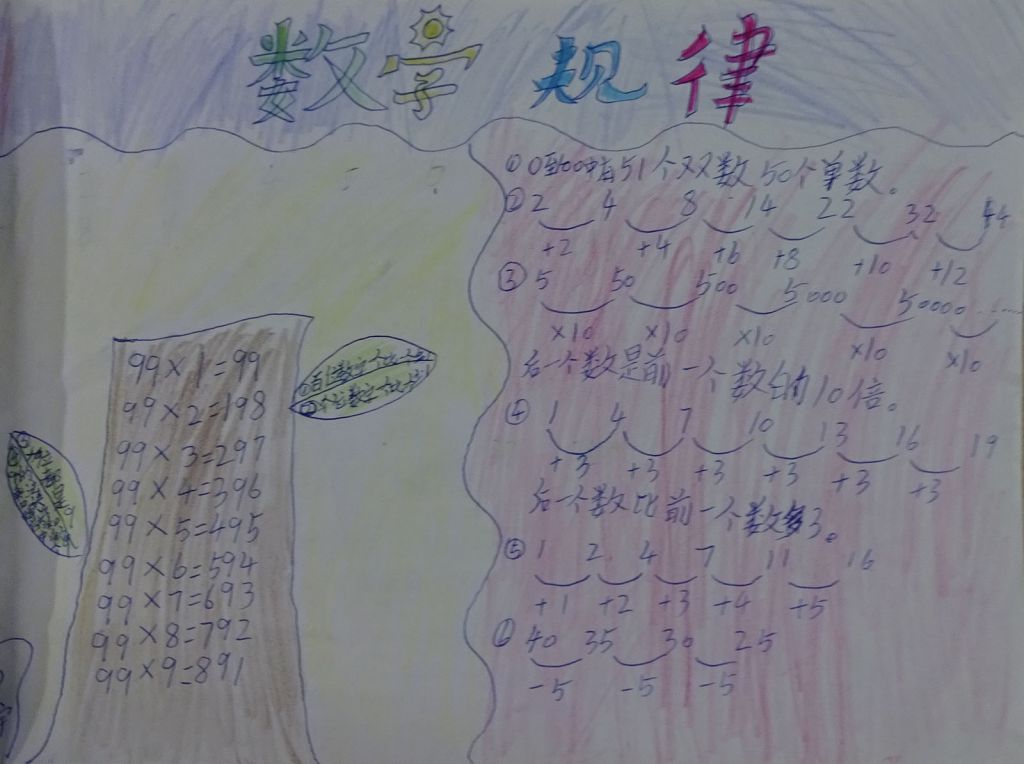 数学规律
99×1=99
99×2=198
99×3=297
99×4=396
99×5=495
99×6=594
99×7=693
99×8=792
99×9=891
①0到100中有51个双数50个单数。
②2 4 8 14 22 32 44
+2 +4 +6 +8 +10 +12
③5 50 500 5000 50000......
×10 ×10 ×10 ×10 ×10
后一个数是前一个数的10倍。
④1 4 7 10 13 16 19
+3 +3 +3 +3 +3 +3
后一个数比前一个数多3。
⑤1 2 4 7 11 16
+1 +2 +3 +4 +5
⑥40 35 30 25
-5 -5 -5